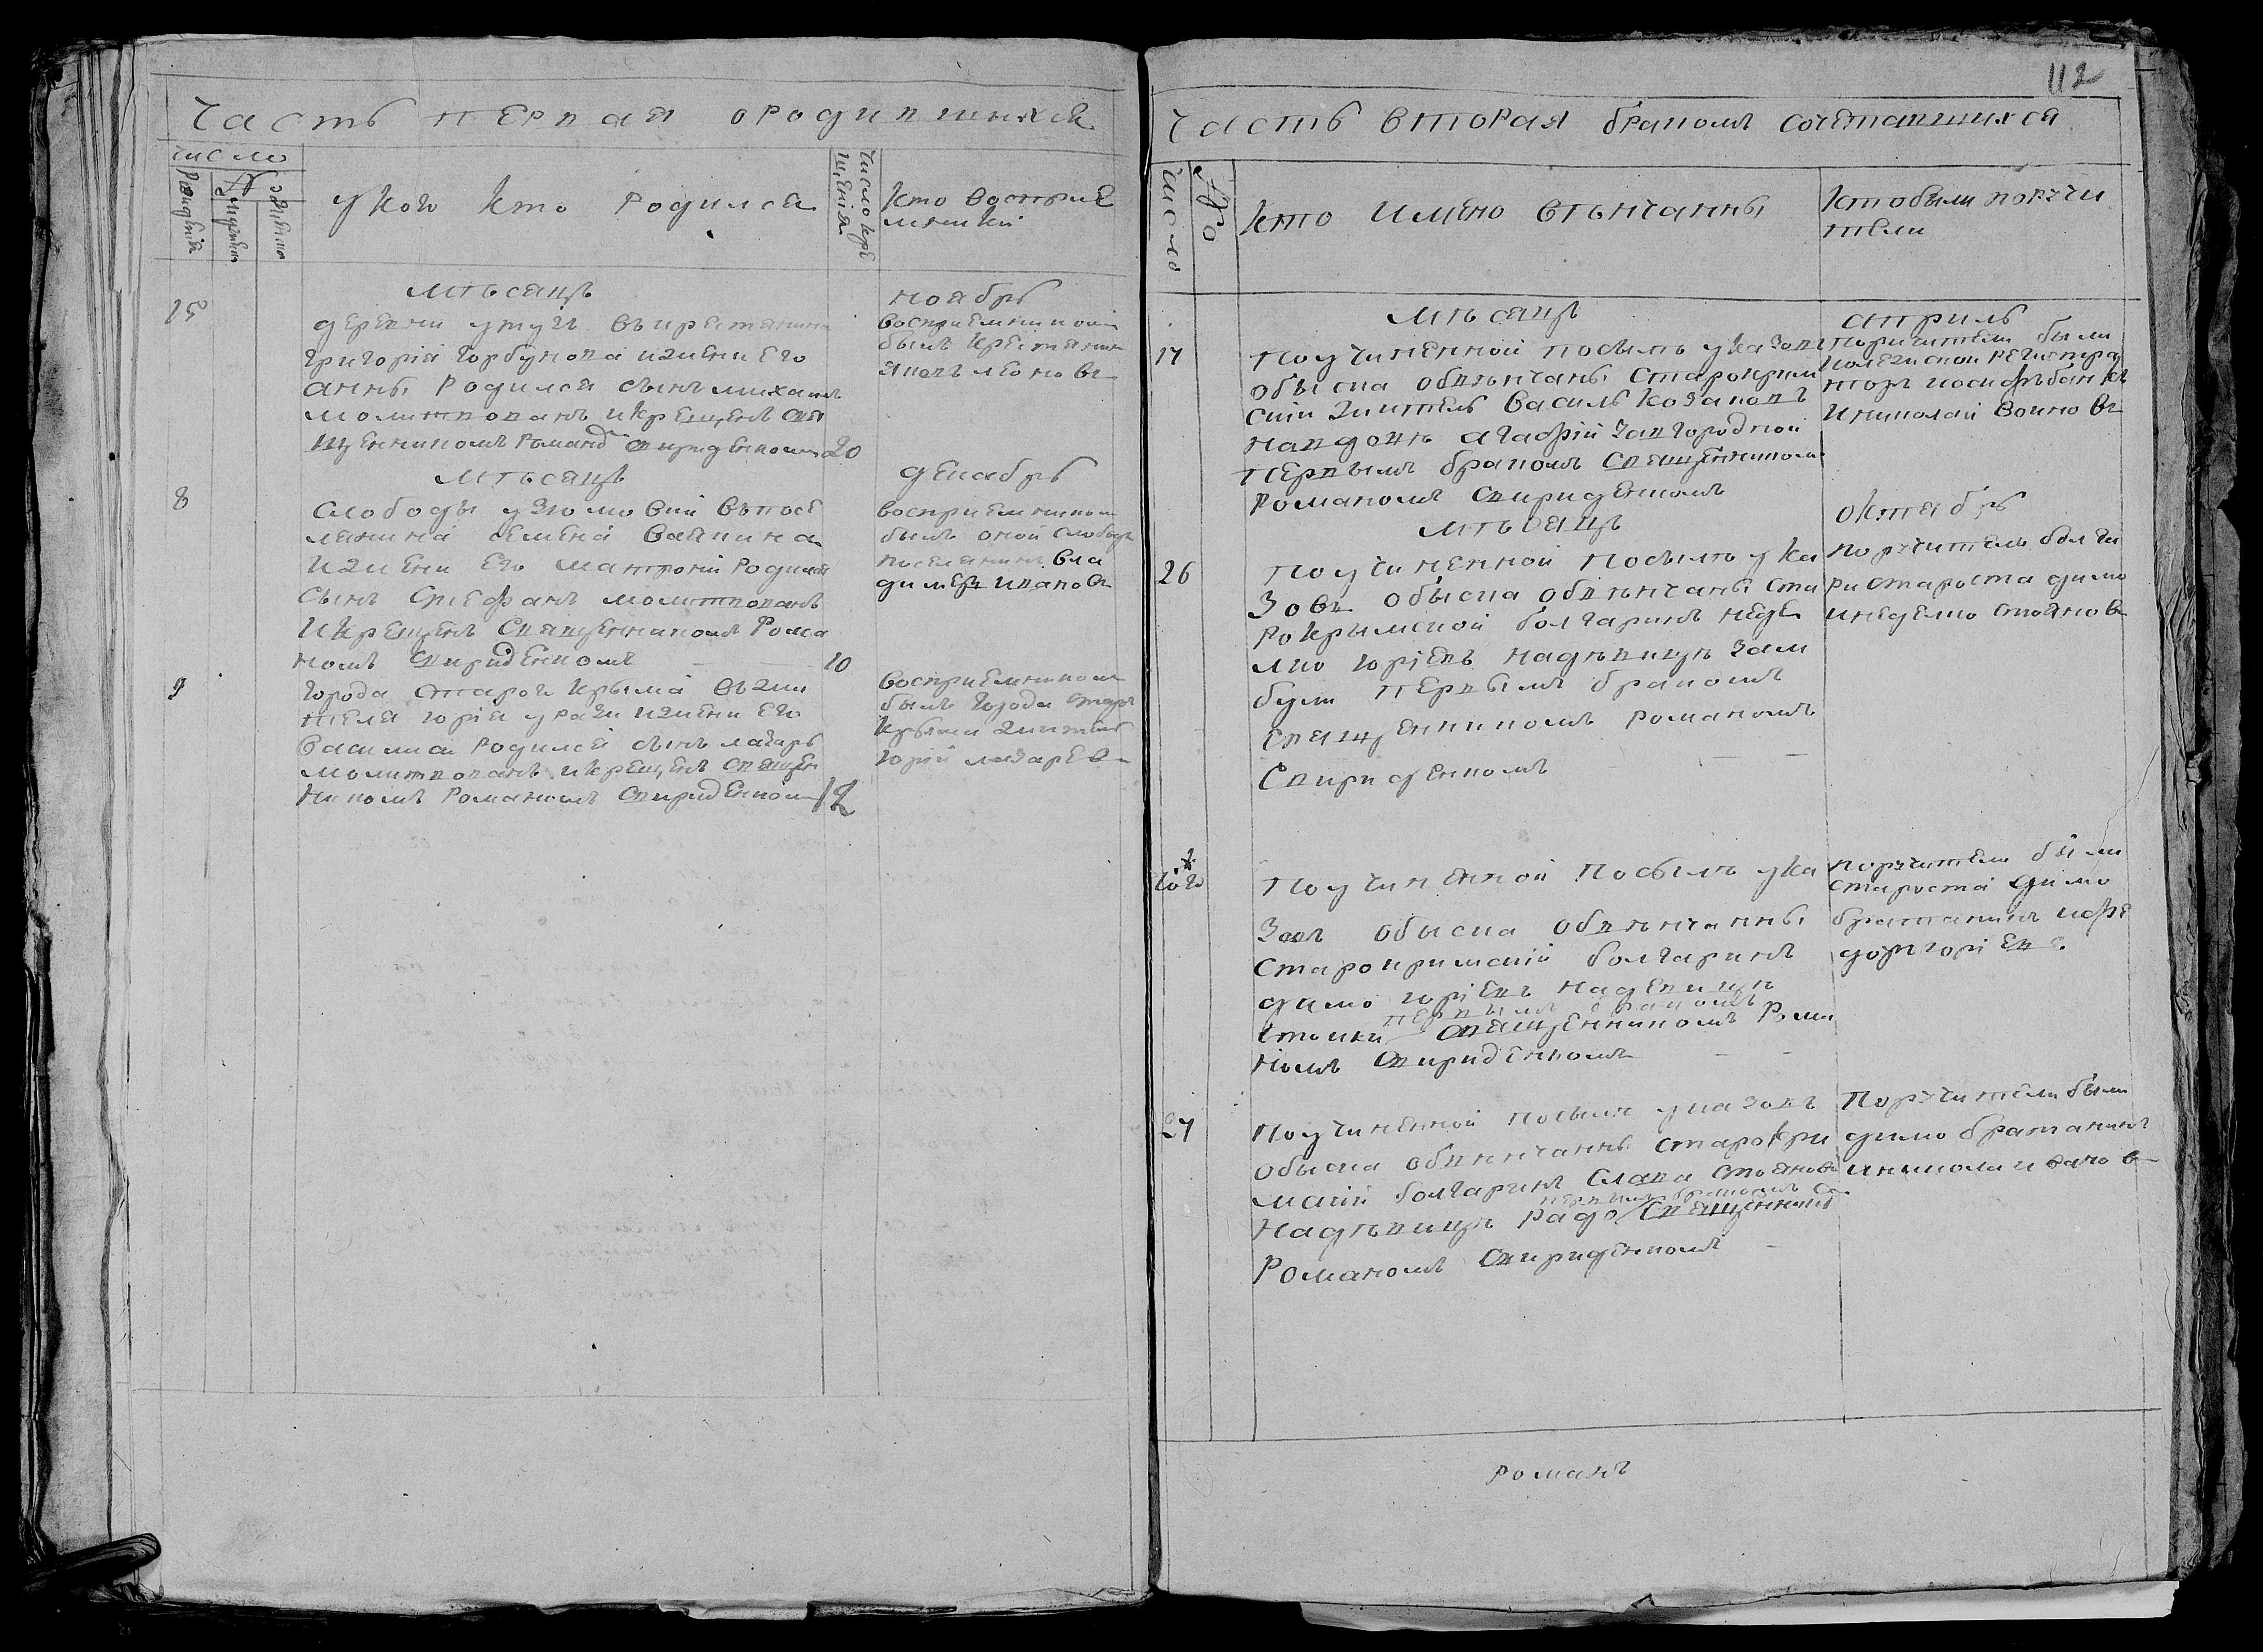 Часть первая о родившихся
число
Рождения
№
мужеска
женска
у кого кто родился
число кре
щения
Кто восприе
мники
мѣсяцъ
ноябрь
15
деревни въ крестянина
Григорія Горбунова и жены его
анны родился сынъ михаилъ
молитвованъ и крещенъ свя
щенникомъ Романомъ Свириденкомъ
20
восприемникомъ
былъ крестянинъ
яковъ леоновъ
мѣсяцъ
декабрь
8
слободы въ посе
лянина семена
и жены его матроны родился
сынъ Стефанъ молитвованъ
и крещенъ Священникомъ Рома
номъ Свириденкомъ
10
восприемникомъ
былъ оной слободы
поселянинъ вла
димеръ ивановъ
9
города старого Крыма въ жи
теля юрія и жены его
василиси родился сынъ лазарь
молитвованъ и крещенъ священ
никомъ Романомъ Свириденкомъ
12
восприемникомъ
былъ города стараго
Крыма житель
юрій лазаревъ
112
Часть вторая бракомъ сочетавшихся
число
№
кто имено вѣнчанны
кто были поручи
тели
мѣсяцъ
априль
17
по учиненной по силѣ указовъ
обыска обвѣнчаны старокрим
скій житель василь козаковъ
на вдовѣ агафій Завгородной
первымъ бракомъ священникомъ
Романомъ Свириденкомъ
поручители были
колежской регистра
торъ иосифъ
и николай воиновъ
мѣсяцъ
октябрь
26
по учиненной по силѣ ука
зовъ обыска обвѣнчаны ста
рокрымской болгаринъ неде
лко юріевъ на дѣвицѣ Зам
були первымъ бракомъ
священникомъ романомъ
Свириденкомъ
поручители болга
ри староста димо
и неделко стояновъ
того
по учиненной по силѣ ука
зовъ обыска обвѣнчанны
старокримскій болгаринъ
димо юріевъ на девицѣ
первымъ бракомъ
стоики священникомъ Рома
номъ Свириденкомъ
поручители были
староста димо
братанинъ и фе
доръ юріевъ
27
по учиненной по силѣ указовъ
обыска обвѣнчанны старокри
мскій болгаринъ слава стояновъ
первымъ бракомъ
на дѣвицѣ Радо священникомъ
Романомъ Свириденкомъ
поручители были
димо братанинъ
и николи
романъ